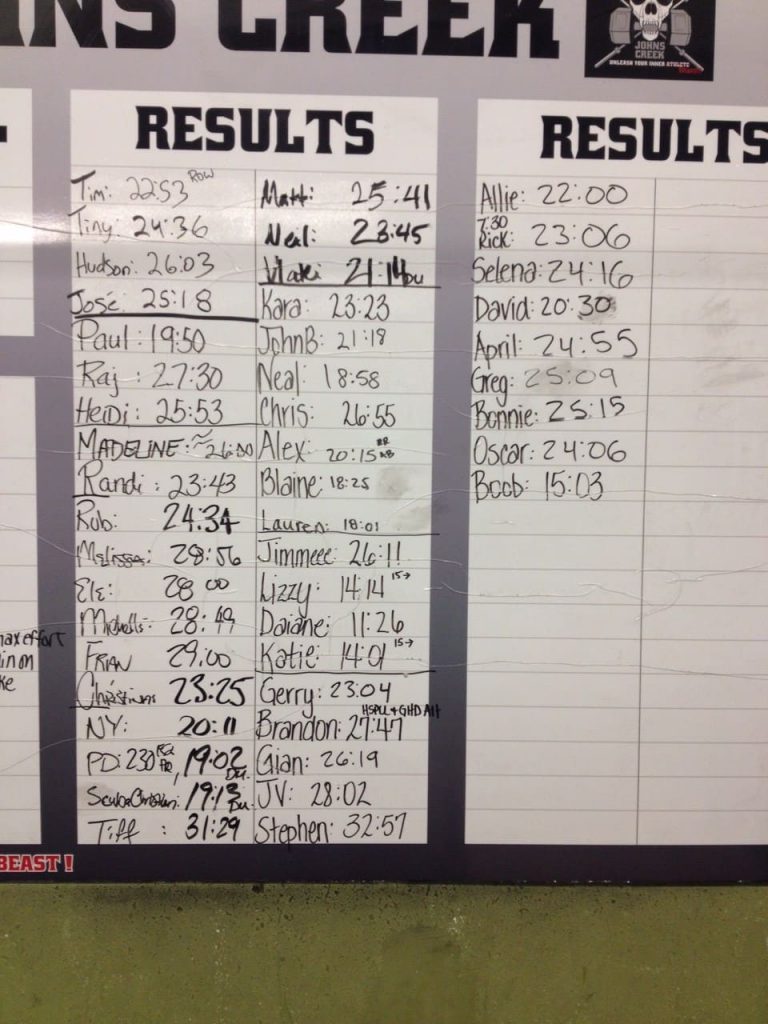 NS CREEK
JOHNS
CREEK
UNLEASH YOUR INNER ATHLETE
RESULTS
Tim: 22:53 ROW
Tiny: 24:36
Hudson: 26:03
José: 25:18
Paul: 19:50
Raj: 27:30
HEiDi: 25:53
MADELINE: ~26:00
Randi: 23:43
Rob: 24:34
Melissa: 28:56
Ele: 28:00
Michelle: 28:49
FRAN 29:00
Christina 23:25
NY: 20:11
PD: 230 , 19:02 DU.
ScubaChristian: 19:13 DU.
Tiff : 31:29
Matt: 25:41
Neal: 23:45
21:14 DU
Kara: 23:23
JohnB: 21:18
Neal: 18:58
Chris: 26:55
Alex: 20:15
Blaine: 18:25
Lauren: 18:01
Jimmeee: 26:11
Lizzy: 14:14 15→
Daiane: 11:26
Katie: 14:01 15→
Gerry: 23:04
HSPU + GHD Alt
Brandon: 27:47
Gian: 26:19
JV: 28:02
Stephen: 32:57
RESULTS
Allie: 22:00
7:30
Rick: 23:06
Selena: 24:16
David: 20:30
April: 24:55
Greg: 25:09
Bonnie: 25:15
Oscar: 24:06
Boob: 15:03
max effort
in on
ke
BEAST!